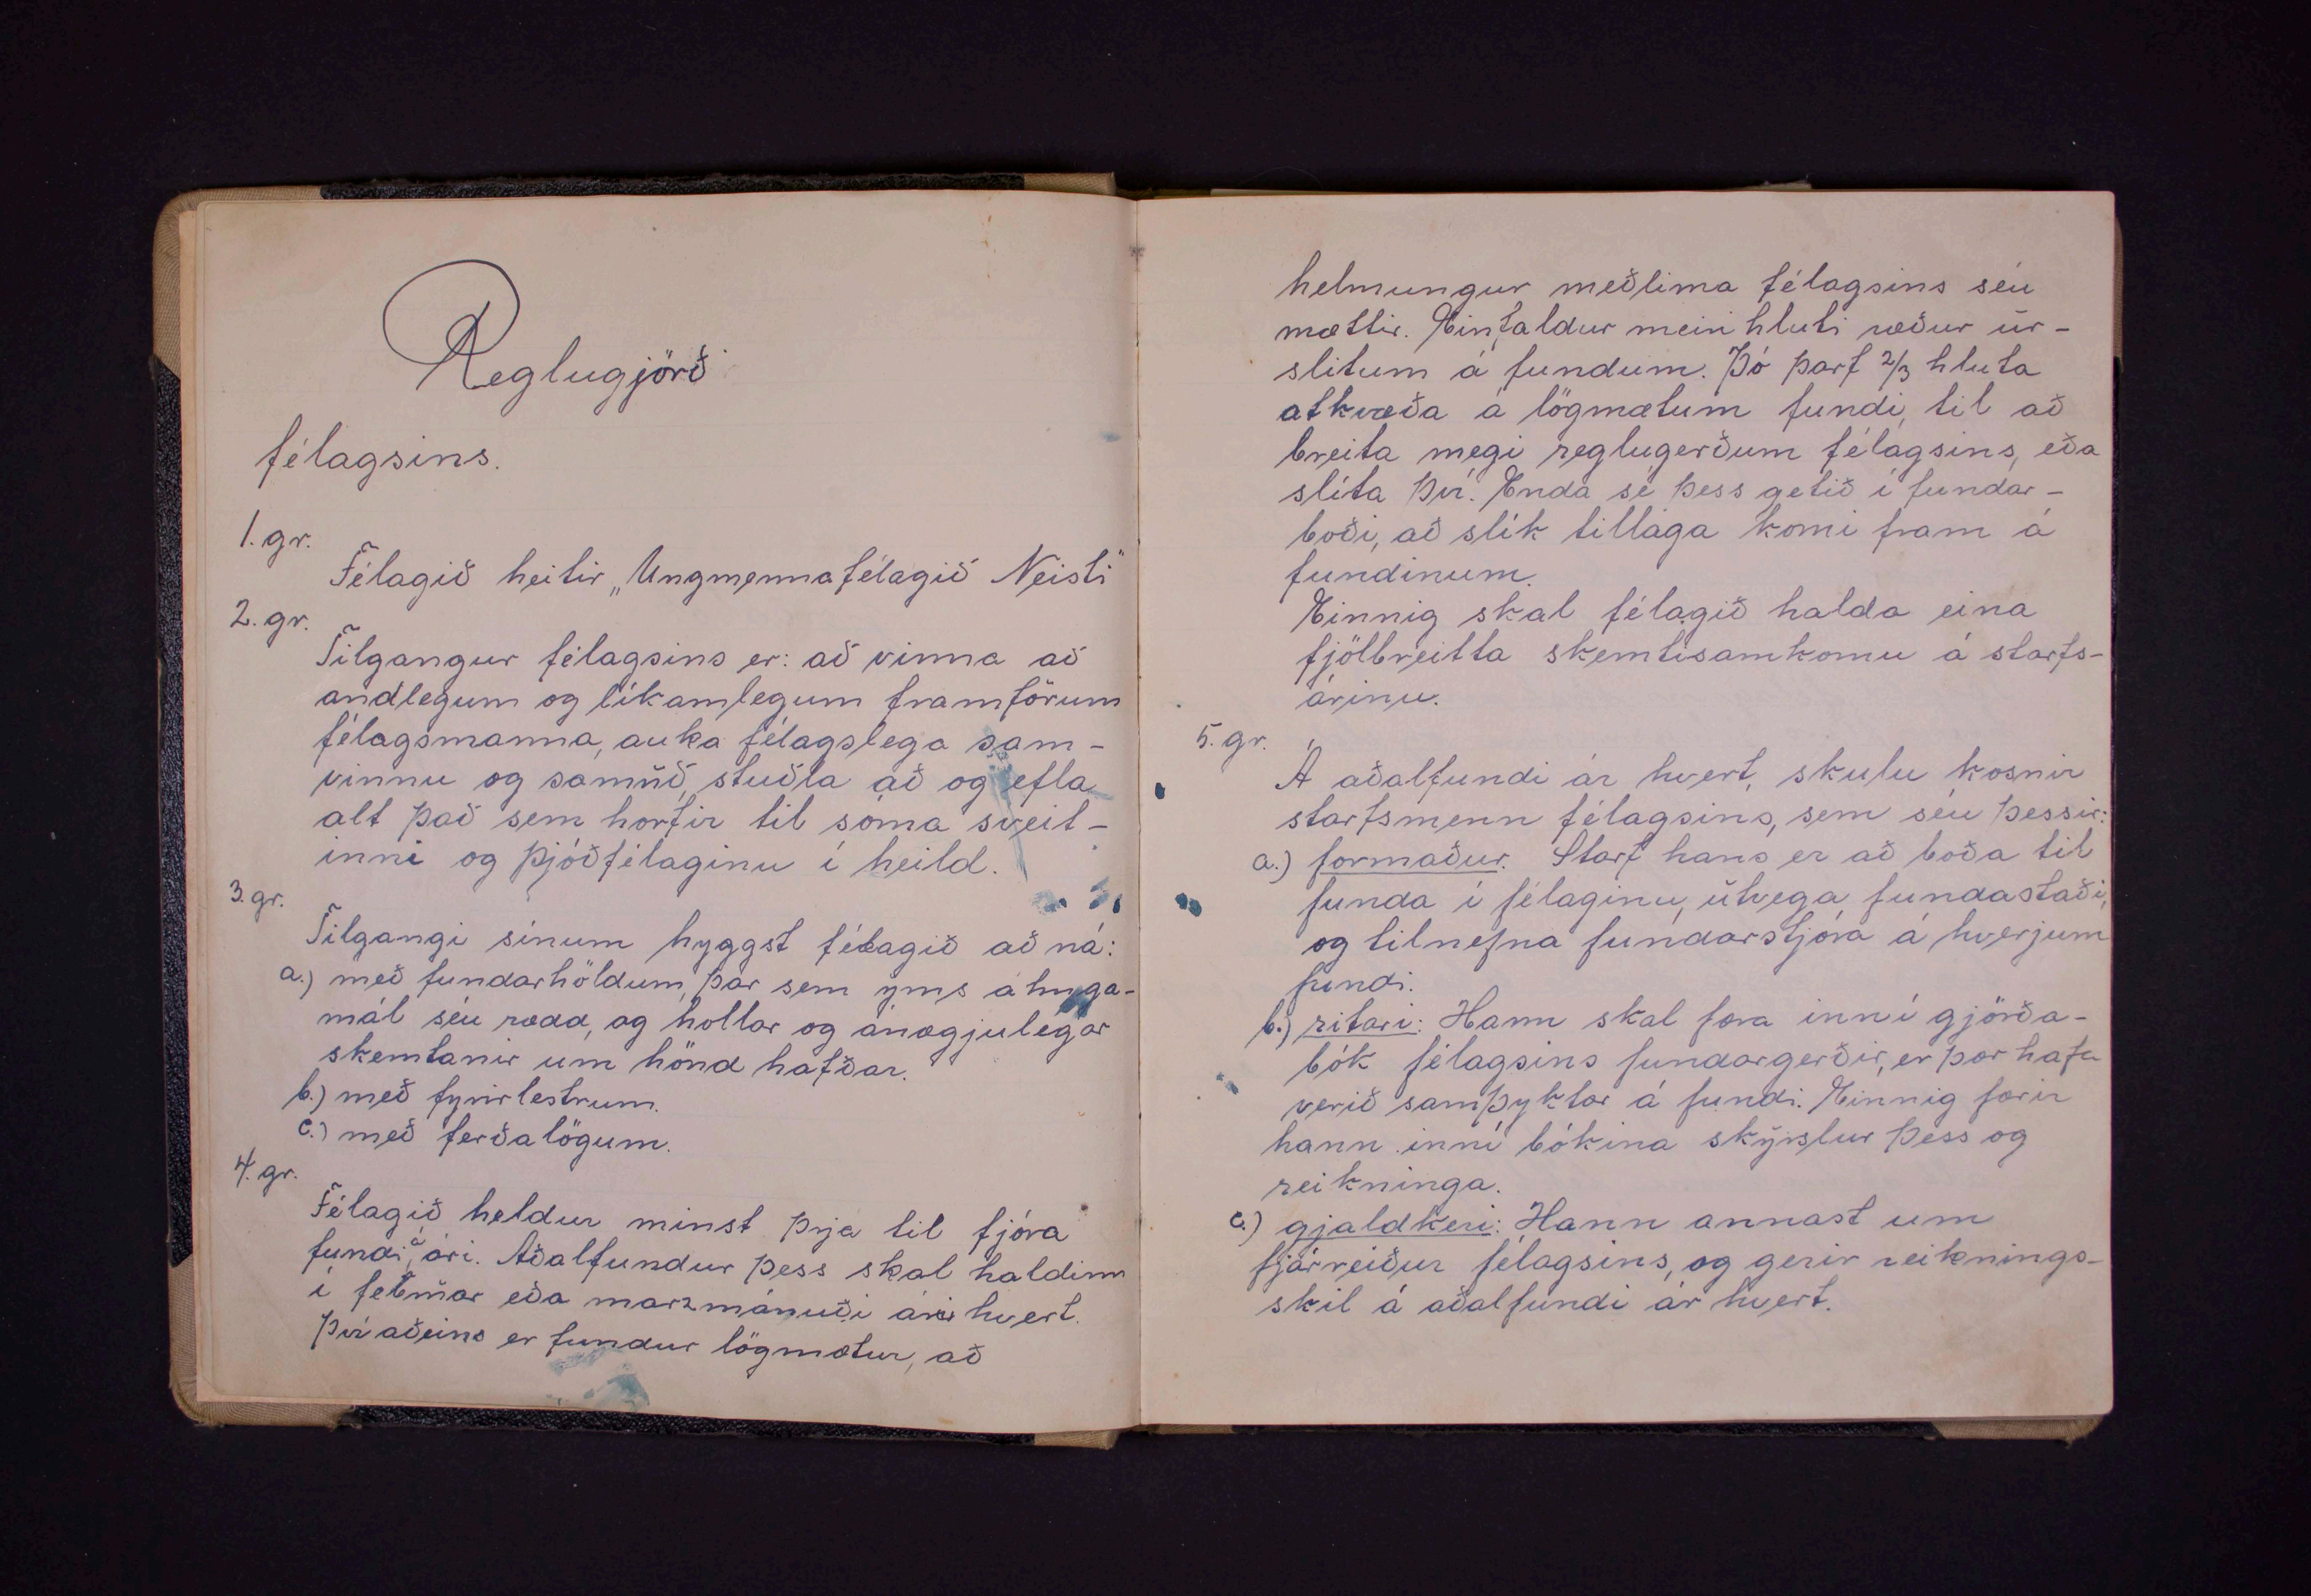 Reglugjörð
félagsins.
1. gr.
Félagið heitir „Ungmennafélagið Neisti"
2. gr.
Tilgangur félagsins er: að vinna að
andlegum og líkamlegum framförum
félagsmanna, auka félagslega sam-
vinnu og samúð, stuðla að og efla
alt það sem horfir til sóma sveit-
inni og þjóðfélaginu í heild.
3. gr.
Tilgangi sínum hyggst félagið að ná:
a.) með fundarhöldum, þar sem ýms áhuga-
mál séu rædd, og hollar og ánægjulegar
skemtanir um hönd hafðar.
b.) með fyrirlestrum.
c.) með ferðalögum.
4. gr.
Félagið heldur minst þrjá til fjóra
fundi á, ári. Aðalfundur þess skal haldinn
í febrúar eða marzmánuði ár hvert.
Því aðeins er fundur lögmætur, að
helmungur meðlima félagsins séu
mættir. Einfaldur meiri hluti ræður úr-
slitum á fundum. Þó þarf 2/3 hluta
atkvæða á lögmætum fundi, til að
breita megi reglugerðum félagsins, eða
slíta því. Enda sé þess getið í fundar-
boði, að slík tillaga komi fram á
fundinum.
Einnig skal félagið halda eina
fjölbreitta skemtisamkomu á starfs-
árinu.
5. gr.
Á aðalfundi ár hvert, skulu kosnir
starfsmenn félagsins, sem séu þessir:
a.) formaður. Starf hans er að boða til
funda í félaginu, útvega fundastaði,
og tilnefna fundarstjóra á hverjum
fundi.
b.) ritari: Hann skal færa inní gjörða-
bók félagsins fundargerðir, er þar hafa
verið samþyktar á fundi. Einnig færir
hann inní bókina skýrslur þess og
reikninga.
c.) gjaldkeri: Hann annast um
fjárreiður félagsins, og gerir reiknings-
skil á aðalfundi ár hvert.